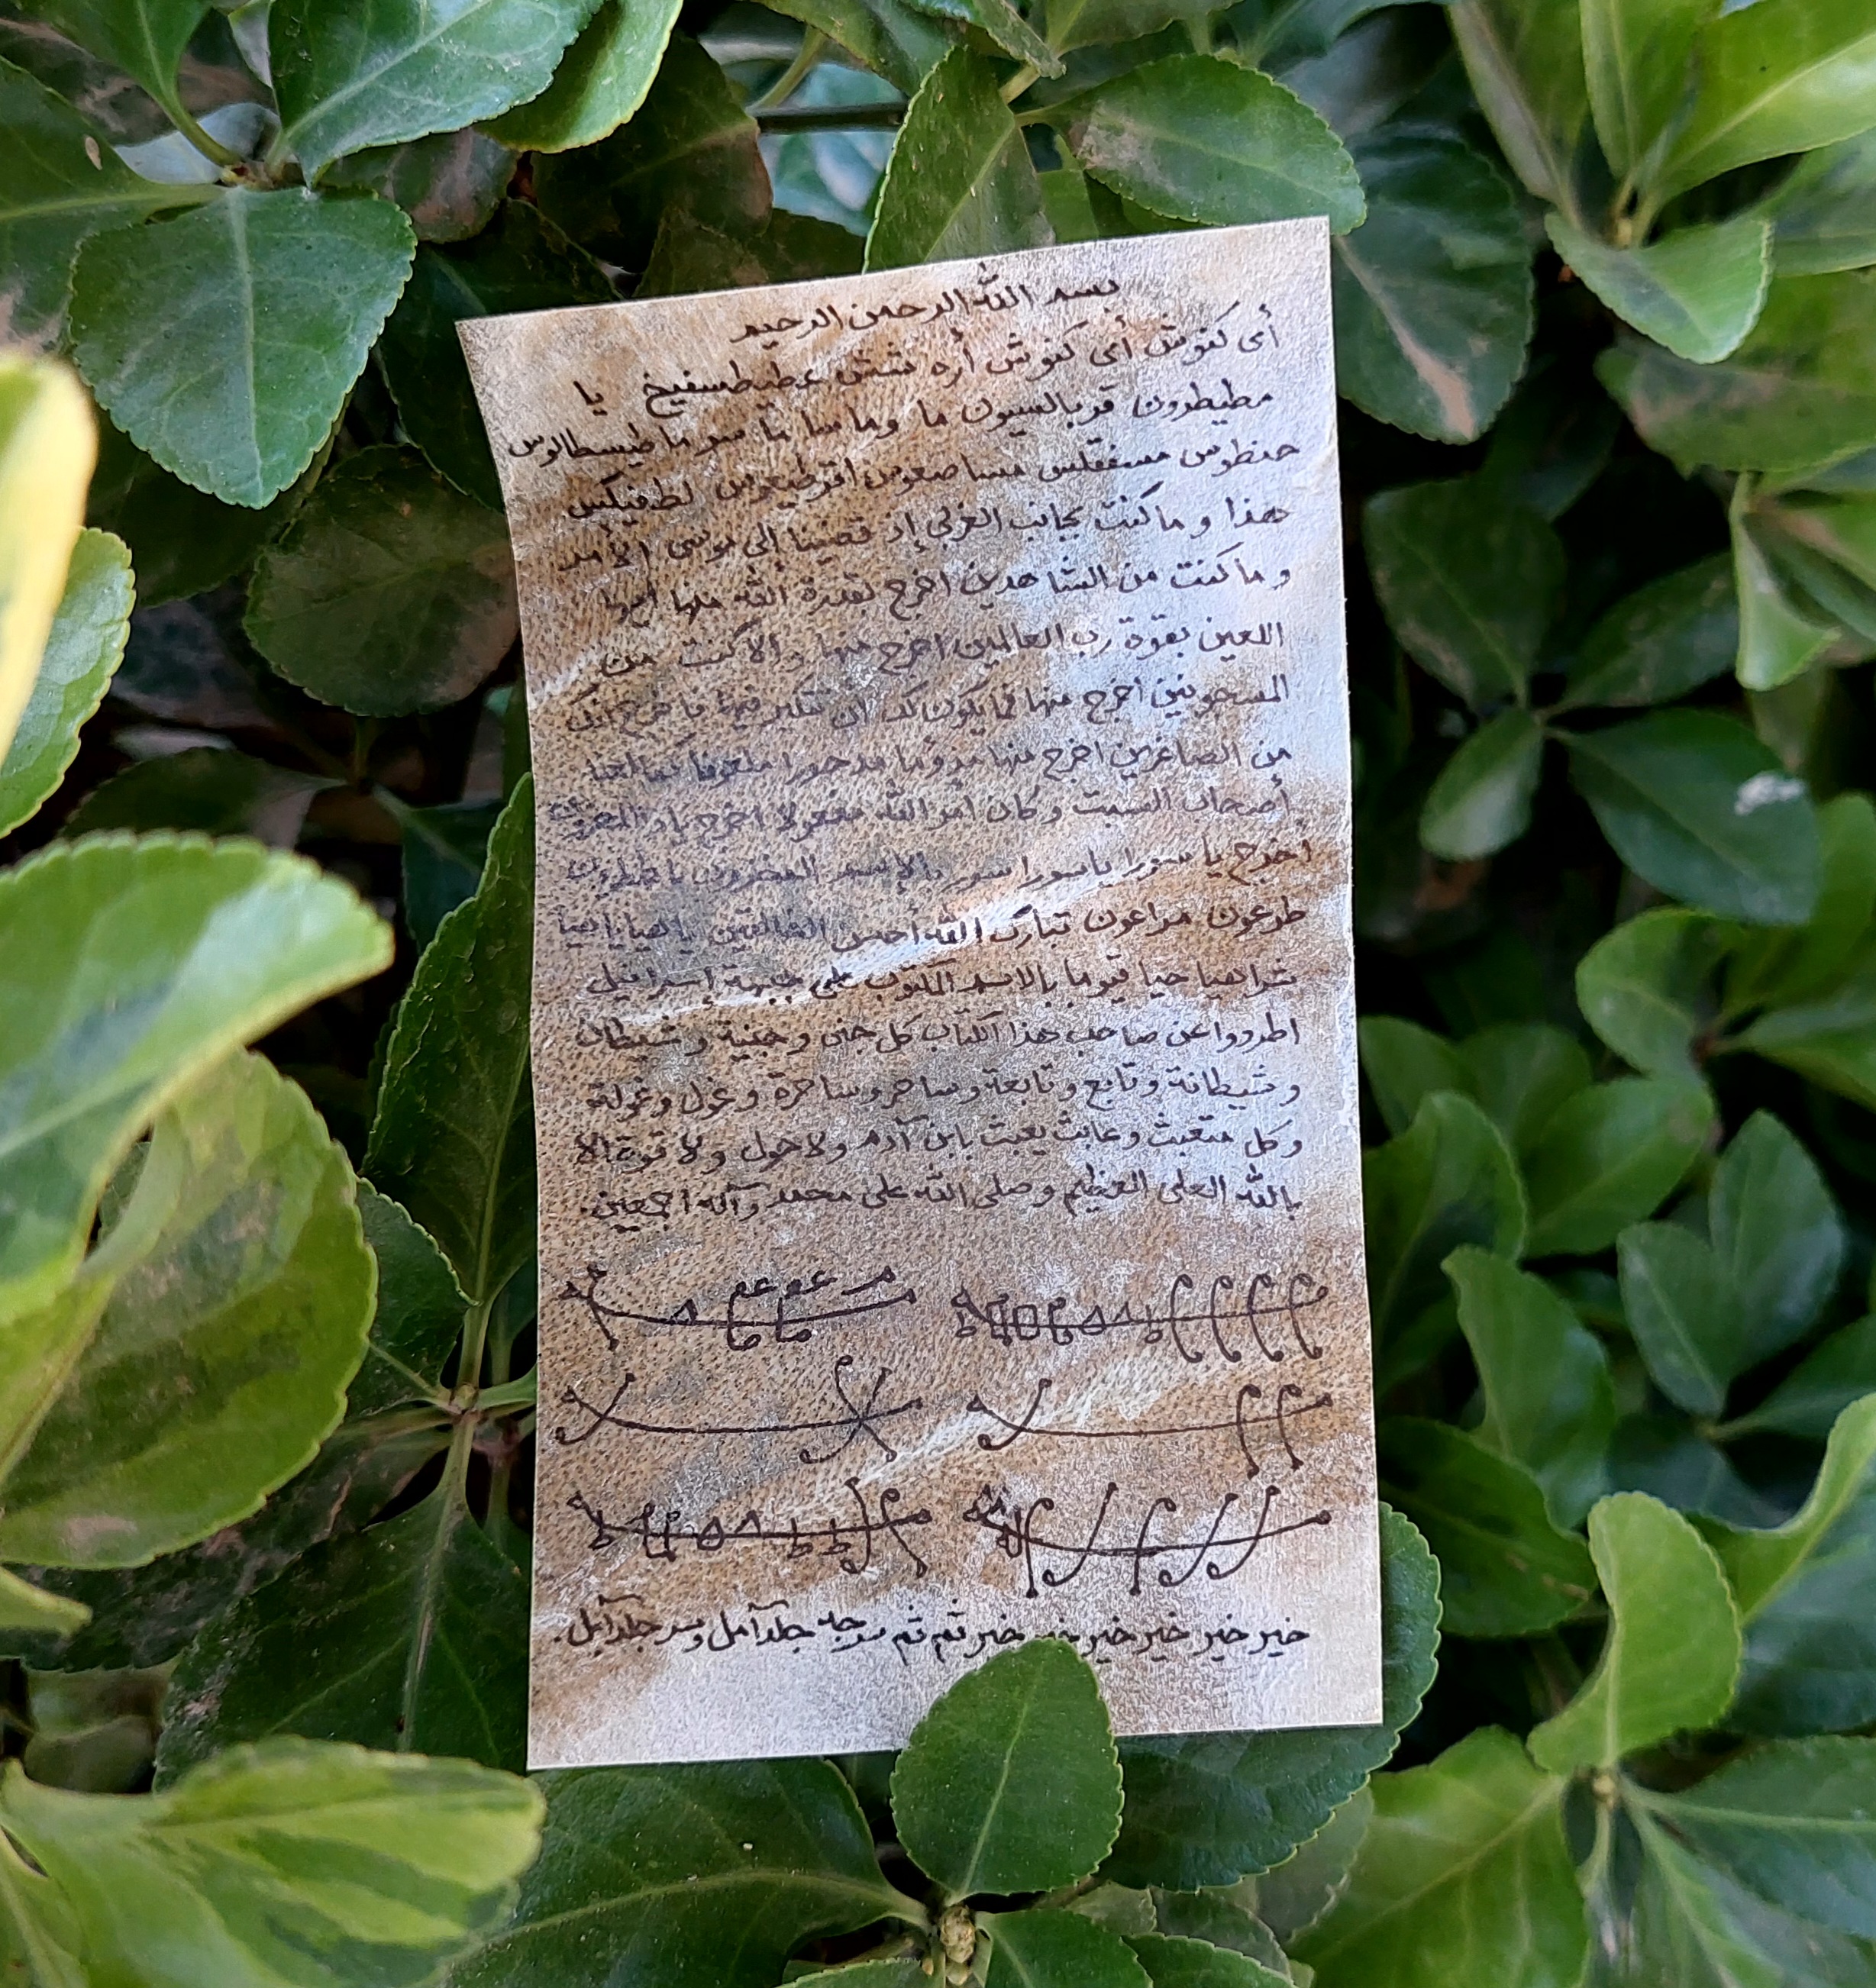 بسم الله الرحمن الرحيم
أى كنوش أى كنوش أره شش عطيطسفيخ يا
مطيطرون قربالسيون ما وما سا ما سر ما طيسطالوس
حنطوس مسفقلس مساصعوس اقرطيعوس لطفيكس
هذا و ما كنت بجانب الغربي إذ قضينا إلى موسى الأمر
و ما كنت من الشاهدين اخرج بقدرة الله منها أيها
اللعين بقوة رب العالمين اخرج منها و الا كنت من
المسجونين اخرج منها فما يكون لك أن تتكبر فيها فاخرج إنك
من الصاغرين اخرج منها مذوما مدحورا ملعونا كما لعنا
أصحاب السبت و كان أمر الله مفعولا اخرج ياذا المخزون
اخرج يا سورا يا سورا سور بالإسم المخزون يا ططرون
طرعون مراعون تبارك الله أحسن الخالقين يا هيا يا هيا
شراهيا حيا قيوما بالاسم المكتوب على جبهة إسرافيل
اطردوا عن صاحب هذا الكتاب كل جنى و جنية و شيطان
و شيطانة و تابع و تابعة و ساحر و ساحرة و غول و غولة
و كل متعبث و عابث يعبث بابن آدم و لا حول و لا قوة الا
بالله العلى العظيم و صلى الله على محمد و آله اجمعين.
خير خير خير خير خير تم تم سرجه جلد آمل و سر جلد آمل.